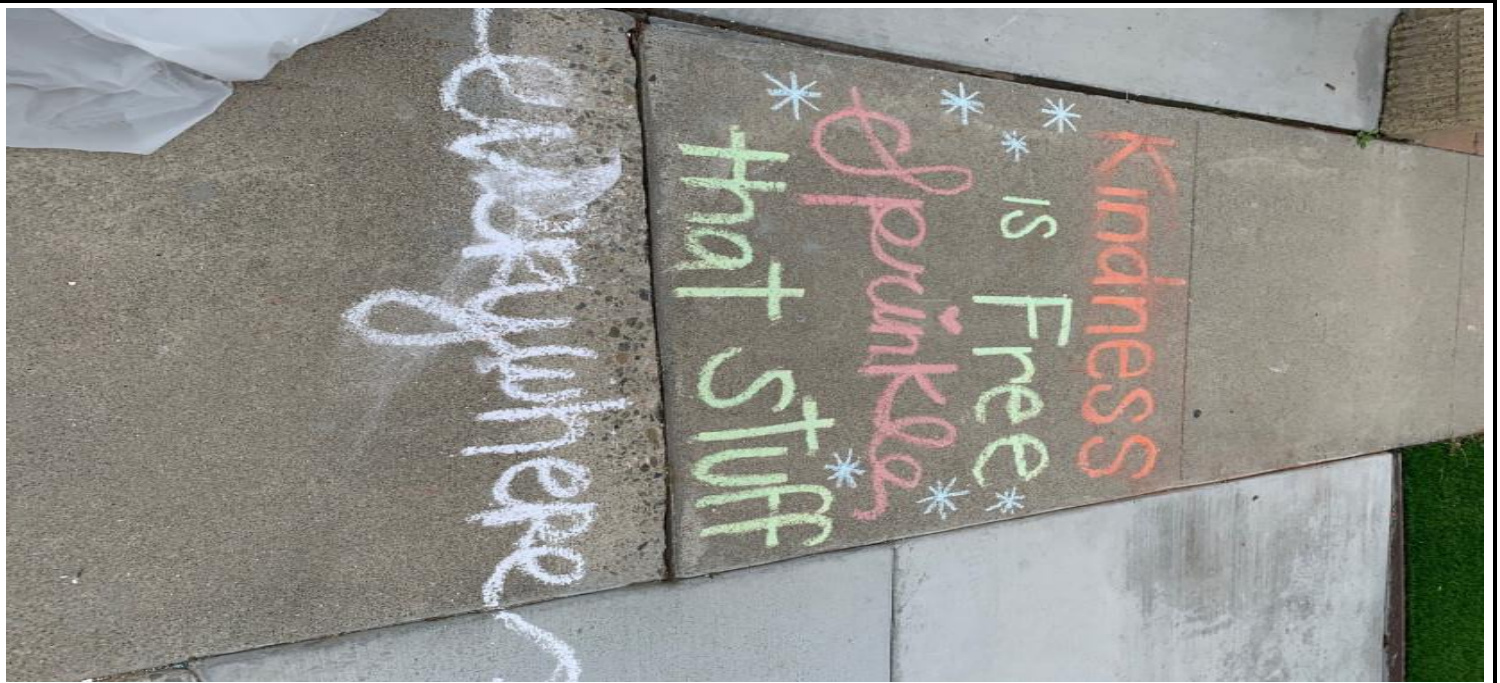 Kindness
is Free
Sprinkle
that stuff
everywhere